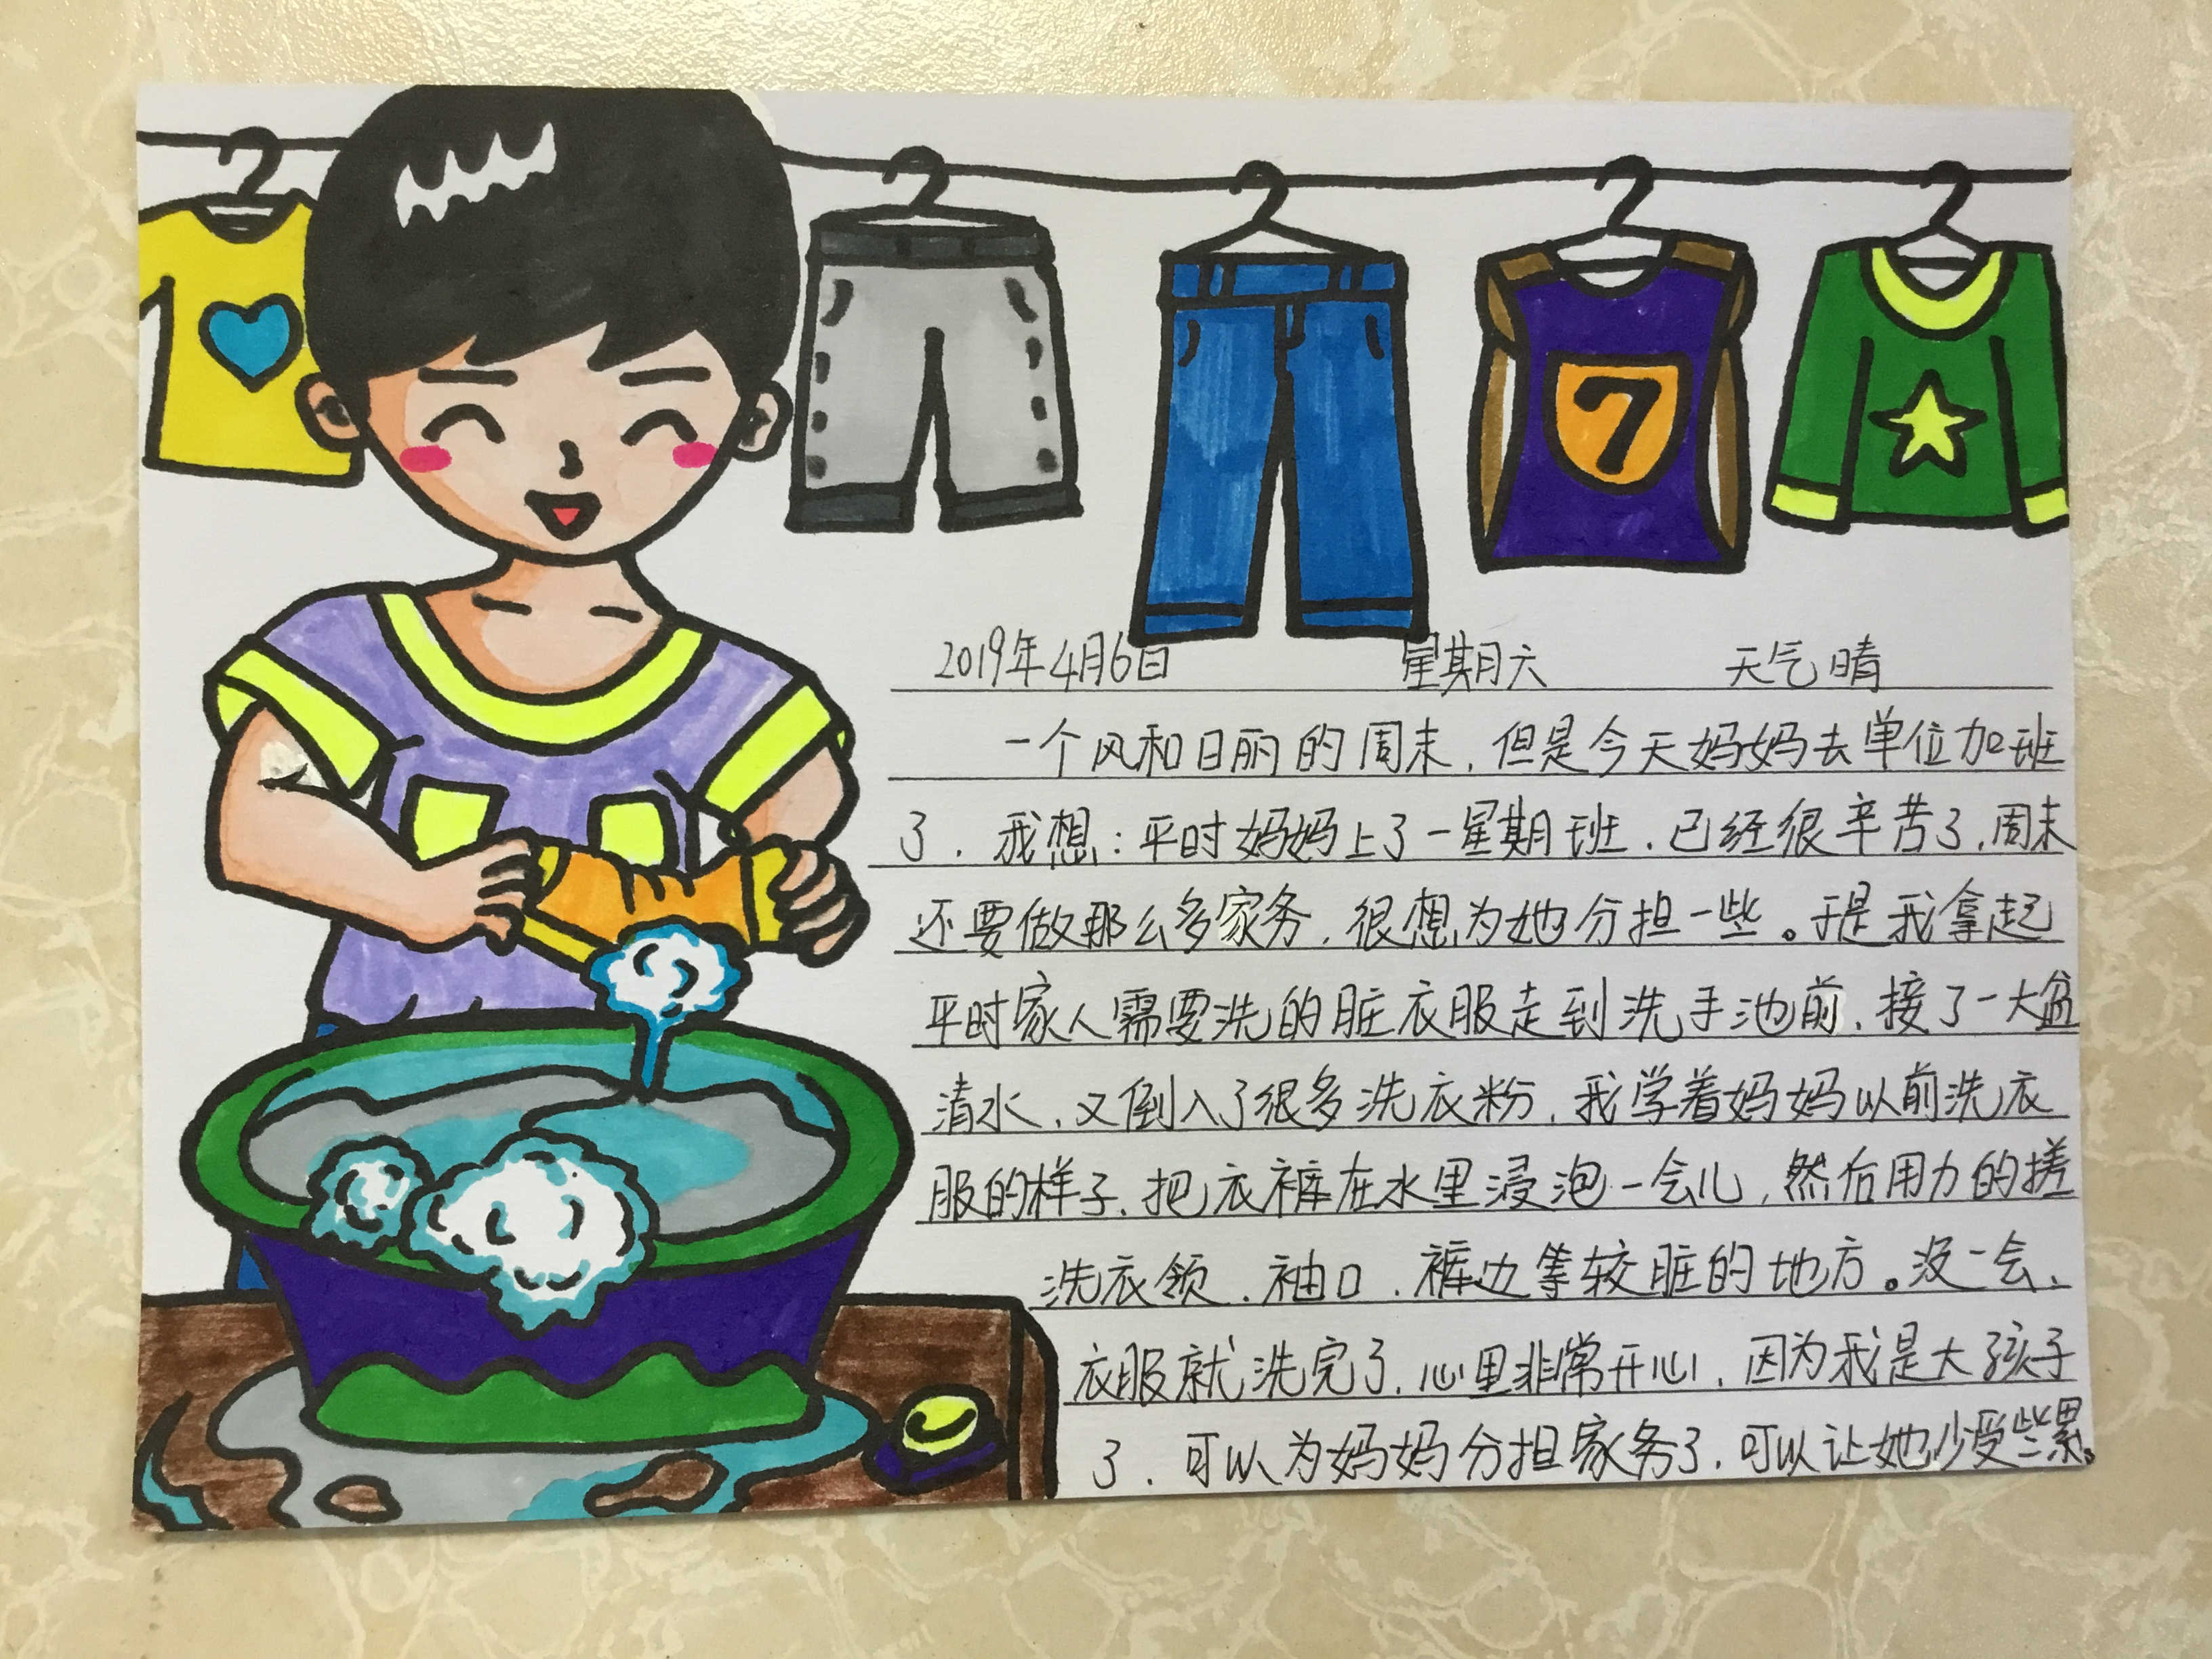 7
2019年4月6日 星期六 天气晴
一个风和日丽的周末,但是今天妈妈去单位加班
了,我想:平时妈妈上了一星期班,已经很辛苦了,周末
还要做那么多家务,很想为她分担一些。于是我拿起
平时家人需要洗的脏衣服走到洗手池前,接了一大盆
清水,又倒入了很多洗衣粉,我学着妈妈以前洗衣
服的样子,把衣裤在水里浸泡一会儿,然后用力的搓
洗衣领、袖口、裤边等较脏的地方。没一会、
衣服就洗完了,心里非常开心,因为我是大孩子
了,可以为妈妈分担家务了,可以让她少受些累。